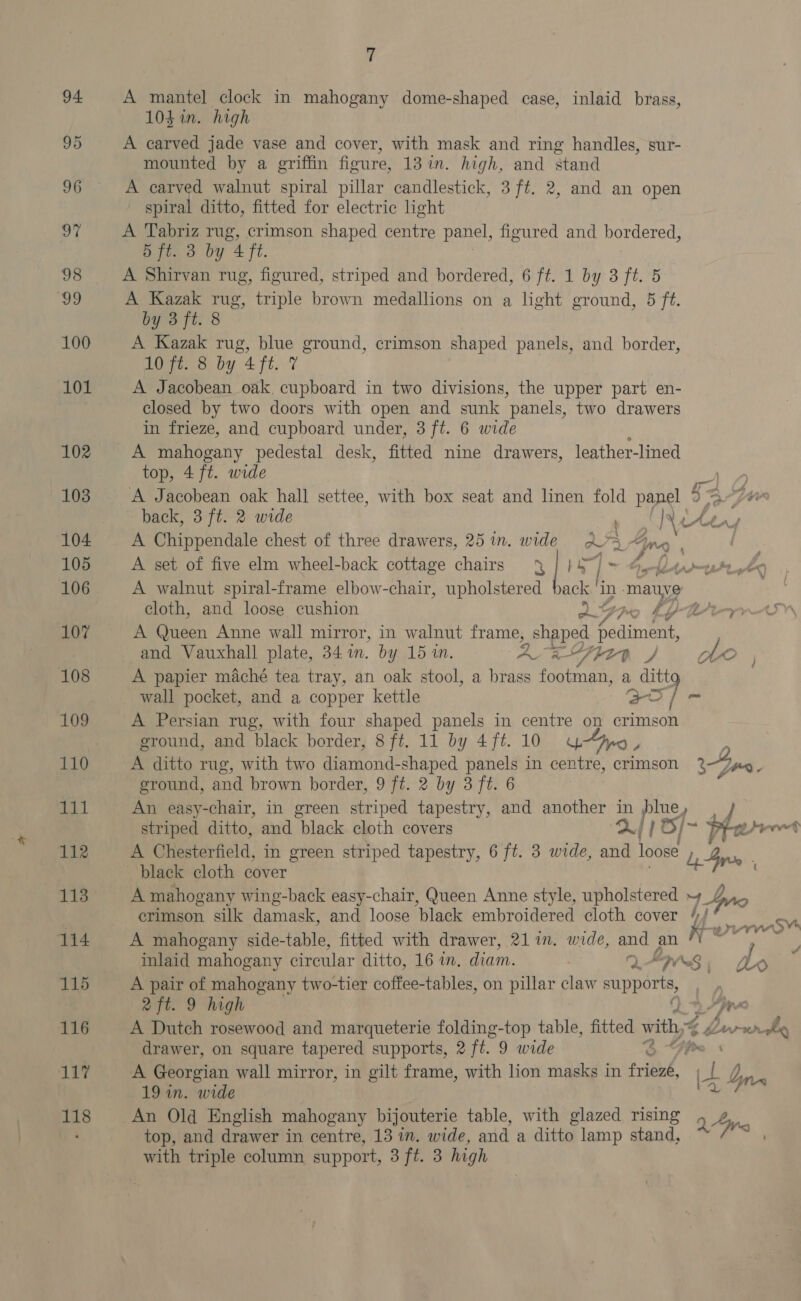 7
94 A mantel clock in mahogany dome-shaped case, inlaid brass,
10½ in. high
95 A carved jade vase and cover, with mask and ring handles, sur-
mounted by a griffin figure, 13 in. high, and stand
96 A carved walnut spiral pillar candlestick, 3 ft. 2, and an open
spiral ditto, fitted for electric light
97 A Tabriz rug, crimson shaped centre panel, figured and bordered,
5 ft. 3 by 4 ft.
98 A Shirvan rug, figured, striped and bordered, 6 ft. 1 by 3 ft. 5
99 A Kazak rug, triple brown medallions on a light ground, 5 ft.
by 3 ft. 8
100 A Kazak rug, blue ground, crimson shaped panels, and border,
10 ft. 8 by 4 ft. 7
101 A Jacobean oak cupboard in two divisions, the upper part en-
closed by two doors with open and sunk panels, two drawers
in frieze, and cupboard under, 3 ft. 6 wide
102 A mahogany pedestal desk, fitted nine drawers, leather-lined
top, 4 ft. wide
103 A Jacobean oak hall settee, with box seat and linen fold panel
back, 3 ft. 2 wide
104 A Chippendale chest of three drawers, 25 in. wide
105 A set of five elm wheel-back cottage chairs
106 A walnut spiral-frame elbow-chair, upholstered back in mauve
cloth, and loose cushion
107 A Queen Anne wall mirror, in walnut frame, shaped pediment,
and Vauxhall plate, 34 in. by 15 in. do
108 A papier mâché tea tray, an oak stool, a brass footman, a ditto
wall pocket, and a copper kettle
109 A Persian rug, with four shaped panels in centre on crimson
ground, and black border, 8 ft. 11 by 4 ft. 10
110 A ditto rug, with two diamond-shaped panels in centre, crimson
ground, and brown border, 9 ft. 2 by 3 ft. 6
111 An easy-chair, in green striped tapestry, and another in blue
striped ditto, and black cloth covers
112 A Chesterfield, in green striped tapestry, 6 ft. 3 wide, and loose
black cloth cover
113 A mahogany wing-back easy-chair, Queen Anne style, upholstered
crimson silk damask, and loose black embroidered cloth cover
114 A mahogany side-table, fitted with drawer, 21 in. wide, and an
inlaid mahogany circular ditto, 16 in. diam. do
115 A pair of mahogany two-tier coffee-tables, on pillar claw supports,
2 ft. 9 high
116 A Dutch rosewood and marqueterie folding-top table, fitted with
drawer, on square tapered supports, 2 ft. 9 wide
117 A Georgian wall mirror, in gilt frame, with lion masks in frieze,
19 in. wide
118 An Old English mahogany bijouterie table, with glazed rising
top, and drawer in centre, 13 in. wide, and a ditto lamp stand,
with triple column support, 3 ft. 3 high